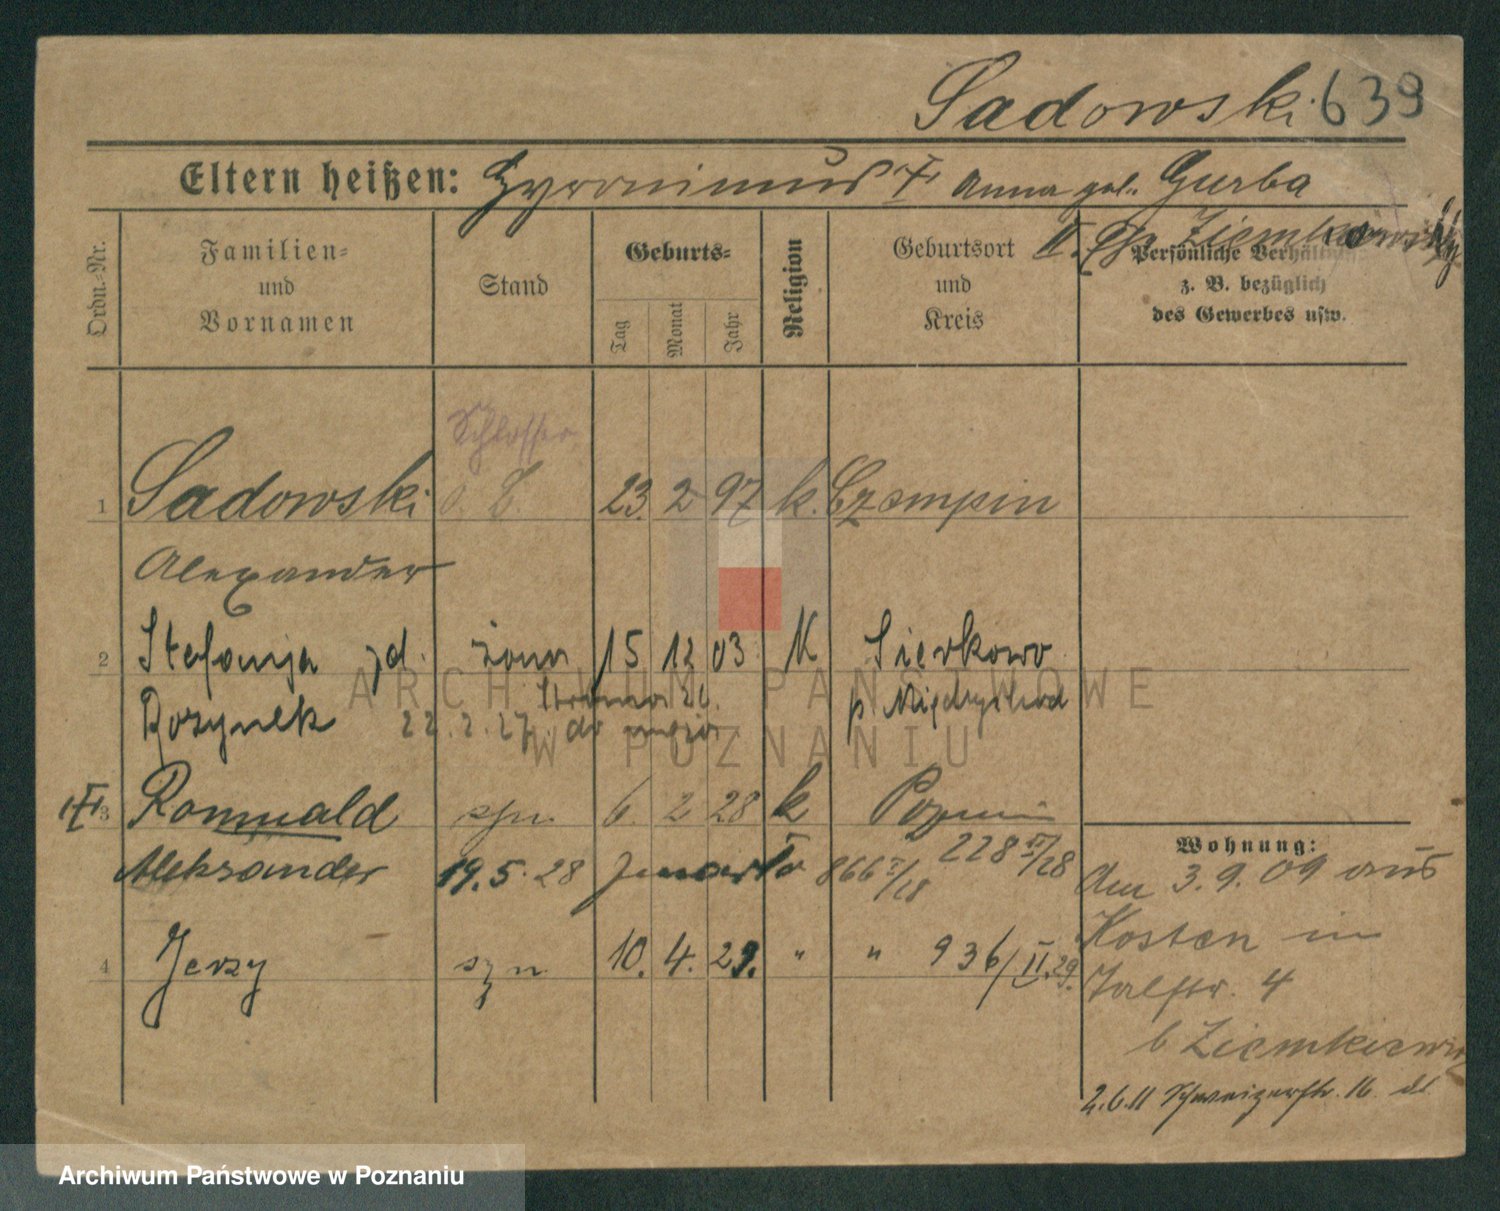 Sadowski 639
Eltern heißen: Hyronimus Anna geb. Gurba
II. Ziemkiewicz
Ordn.-Nr.
Familien-
und
Vornamen
Stand
Geburts-
Tag
Monat
Jahr
Religion
Geburtsort
und
Kreis
Persönliche Verhältnisse
z. B. bezüglich
des Gewerbes usw.
Schlosser
1 Sadowski 23. 2 97 k. Czempin
Alexander
2 Stefanja zd. żona 15 12 03 K Sierkowo
Rozynek 22.2.27. do męża p. Międzychod
3 Romuald syn. 6. 2 28 k Poznań
Aleksander 19.5.28 866 228
4 Jerzy syn 10. 4. 29. " " 936/II.29.
Wohnung:
Am 3.9.09 aus
Kosten in
Talstr. 4
b Ziemkiewicz
2.6.11 Schweizerstr. 16
ARCHIWUM PAŃSTWOWE
W POZNANIU
Archiwum Państwowe w Poznaniu